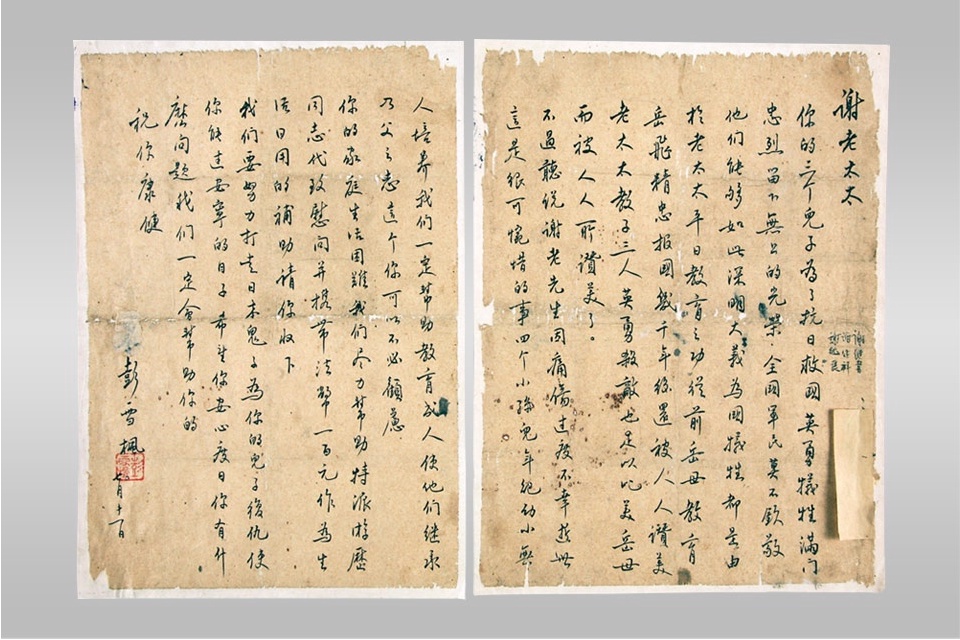 谢老太太
你的三个兒子為了抗日救國英勇犧牲滿门
忠烈留下無上的光榮全國軍民莫不欽敬
他们能够如此深明大義為國犧牲都是由
於老太太平日教育之功從前岳母教育
岳飛精忠报國幾千年後還被人人讚美
老太太教子三人英勇殺敵也足以比美岳母
而被人人所讚美了。
不過聽说谢老先生因痛傷过度不幸逝世
這是很可惋惜的事四个小孫兒年纪幼小無
人培养我们一定幫助教育成人使他们继承
乃父之志這个你可以不必顧慮
你的家庭生活困難我们尽力幫助特派游歷
同志代致慰问并携帶法幣一百元作為生
活日用的補助請你收下
我们要努力打走日本鬼子為你的兒子復仇使
你能过安寧的日子希望你安心度日你有什
麽问题我们一定会幫助你的
祝你康健
彭雪楓
七月十一日